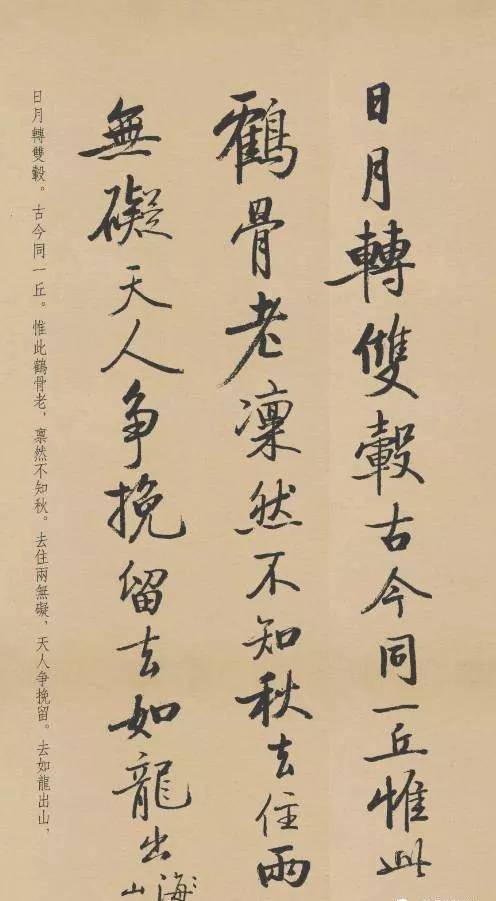 日月轉雙轂古今同一丘惟此
鶴骨老凜然不知秋去住兩
無礙天人争挽留去如龍出
山
海
日月轉雙轂。古今同一丘。惟此鶴骨老，凜然不知秋。去住兩無礙，天人争挽留。去如龍出山，